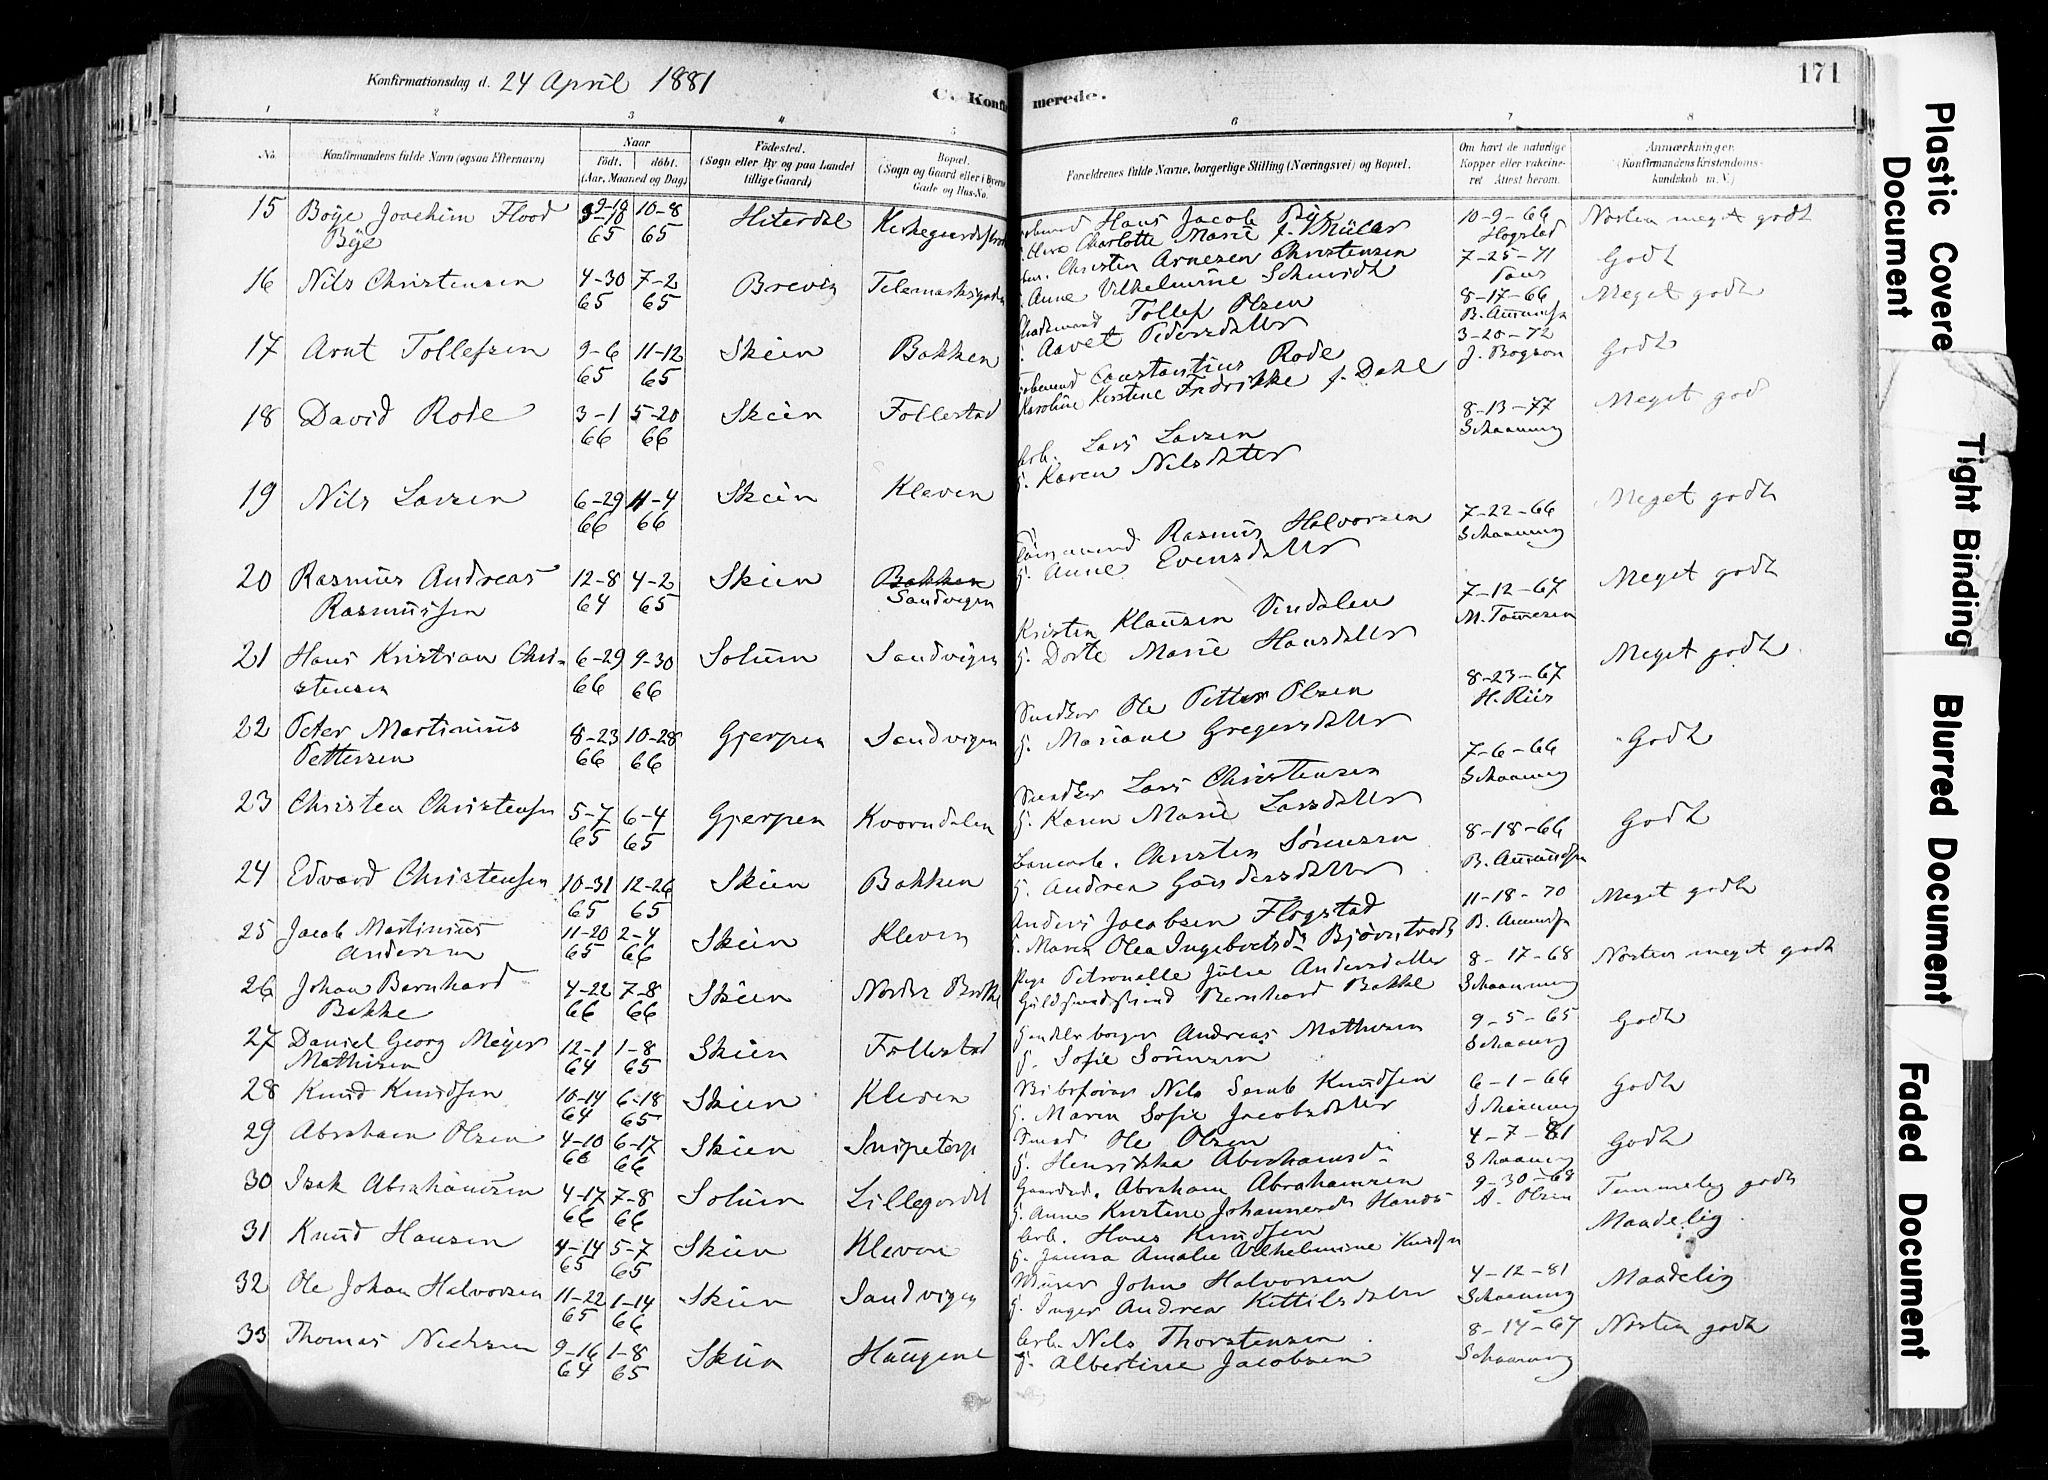 Konfirmationsdag d. 24 April 1881
C. Konfirmerede.
171
1 2 3 4 5 6 7 8
No. Konfirmandens fulde Navn (ogsaa Efternavn) Naar født. døbt. (Aar, Maaned og Dag) Fødested. (Sogn eller By og paa Landet tillige Gaard) Bopæl. (Sogn og Gaard eller i Byerne Gade og Hus-No. Forældrenes fulde Navne, borgerlige Stilling (Næringsvei) og Bopæl. Om havt de naturlige Kopper eller vakcineret. Attest herom. Anmærkninger. (Konfirmandens Kristendomskundskab m. V.)
15 Boye Joachim Flood 10-8 Hiterdal Hans Jacob Bye 10-9-66 Næsten meget godt
Bye 65 65 Charlotte Marie f. Müller Hogstad
16 Nils Christensen 4-30 7-2 Brevig Telemarksgaden Christen Arnesen Christensen 7-25-71 Godt
65 65 Anne Vilhelmine Schmidt
17 Arnt Tollefsen 9-6 11-12 Skien Bakken Tollef Olsen 8-17-66 Meget godt
65 65 Aavet Pedersdatter B. Amundsen
18 David Rode 3-1 5-20 Skien Follestad Constantius Rode 3-20-72 Godt
66 66 Karoline Kirstine Fredrikke f. Dahl J. Bogson
19 Nils Larsen 6-29 11-4 Skien Kleven Arb. Lars Larsen 8-13-77 Meget god
66 66 H. Karen Nilsdatter Schaanning
20 Rasmus Andreas 12-8 4-2 Skien Bakken Rasmus Halvorsen 7-22-66 Meget godt
Rasmussen 64 65 Sandvigen H. Anne Evensdatter Schaanning
21 Hans Kristian Chri- 6-29 9-30 Solum Sandvigen Kristen Klausen Vindalen 7-12-67 Meget godt
stensen 66 66 H. Dorte Marie Hansdatter
22 Peter Martinius 8-23 10-28 Gjerpen Sandvigen Snedker Ole Petter Olsen 8-23-67 Meget godt
Pettersen 66 66 H. Mariane Gregersdatter H. Riis
23 Christen Christensen 5-7 6-4 Gjerpen Kverndalen Snedker Lars Christensen 7-6-66 Godt
65 65 H. Karen Marie Larsdatter Schaanning
24 Edvard Christensen 10-31 12-26 Skien Bakken Christen Sörensen 8-18-66 Godt
65 65 H. Andrea Gundersdatter B. Amundsen
25 Jacob Martinius 11-20 2-4 Skien Kleven Anders Jacobsen Flogstad 11-18-70 Meget godt
Andersen 65 66 H. Maren Olea Ingebretsd. B. Amundsen
26 Johan Bernhard 4-22 7-8 Skien Pige Petronelle Julie Andersdatter 8-17-68 Næsten meget godt
Bakke 66 66 Guldsmedsvend Bernhard Bakke Schaanning
27 Daniel Georg Meyer 12-1 1-8 Skien Follestad Handelsborger Andreas Mathisen 9-5-65 Godt
Mathisen 64 65 H. Sofie Sörensen Schaanning
28 Knud Knudsen 10-14 6-18 Skien Kleven Nils Knudsen 6-1-66 Godt
64 65 H. Maren Sofie Jacobsdatter Schaanning
29 Abraham Olsen 4-10 6-17 Skien Snipetorp Smed Ole Olsen 4-7-81 Godt
66 66 H. Henrikka Abrahamsd. Schaanning
30 Isak Abrahamsen 4-17 7-8 Solum Lillegordet Gaardsd. Abraham Abrahamsen 9-30-68 Temmelig godt
66 66 H. Anne Kristine A. Olsen
31 Knud Hansen 4-14 5-7 Skien Kleven Arb. Hans Knudsen Maadelig
65 65 H. Amalie Vilhelmine Knudsen
32 Ole Johan Halvorsen 11-22 1-14 Skien Sandvigen Murer John Halvorsen 4-12-81 Maadelig
65 66 H. Inger Andrea Kittilsdatter Schaanning
33 Thomas Nielsen 9-16 1-8 Skien Haugene Arb. Nils Thorstensen 8-14-67 Næsten godt
64 65 H. Albertine Jacobsen Schaanning
Plastic Covere
Document
Tight Binding
Blurred Document
Faded Document